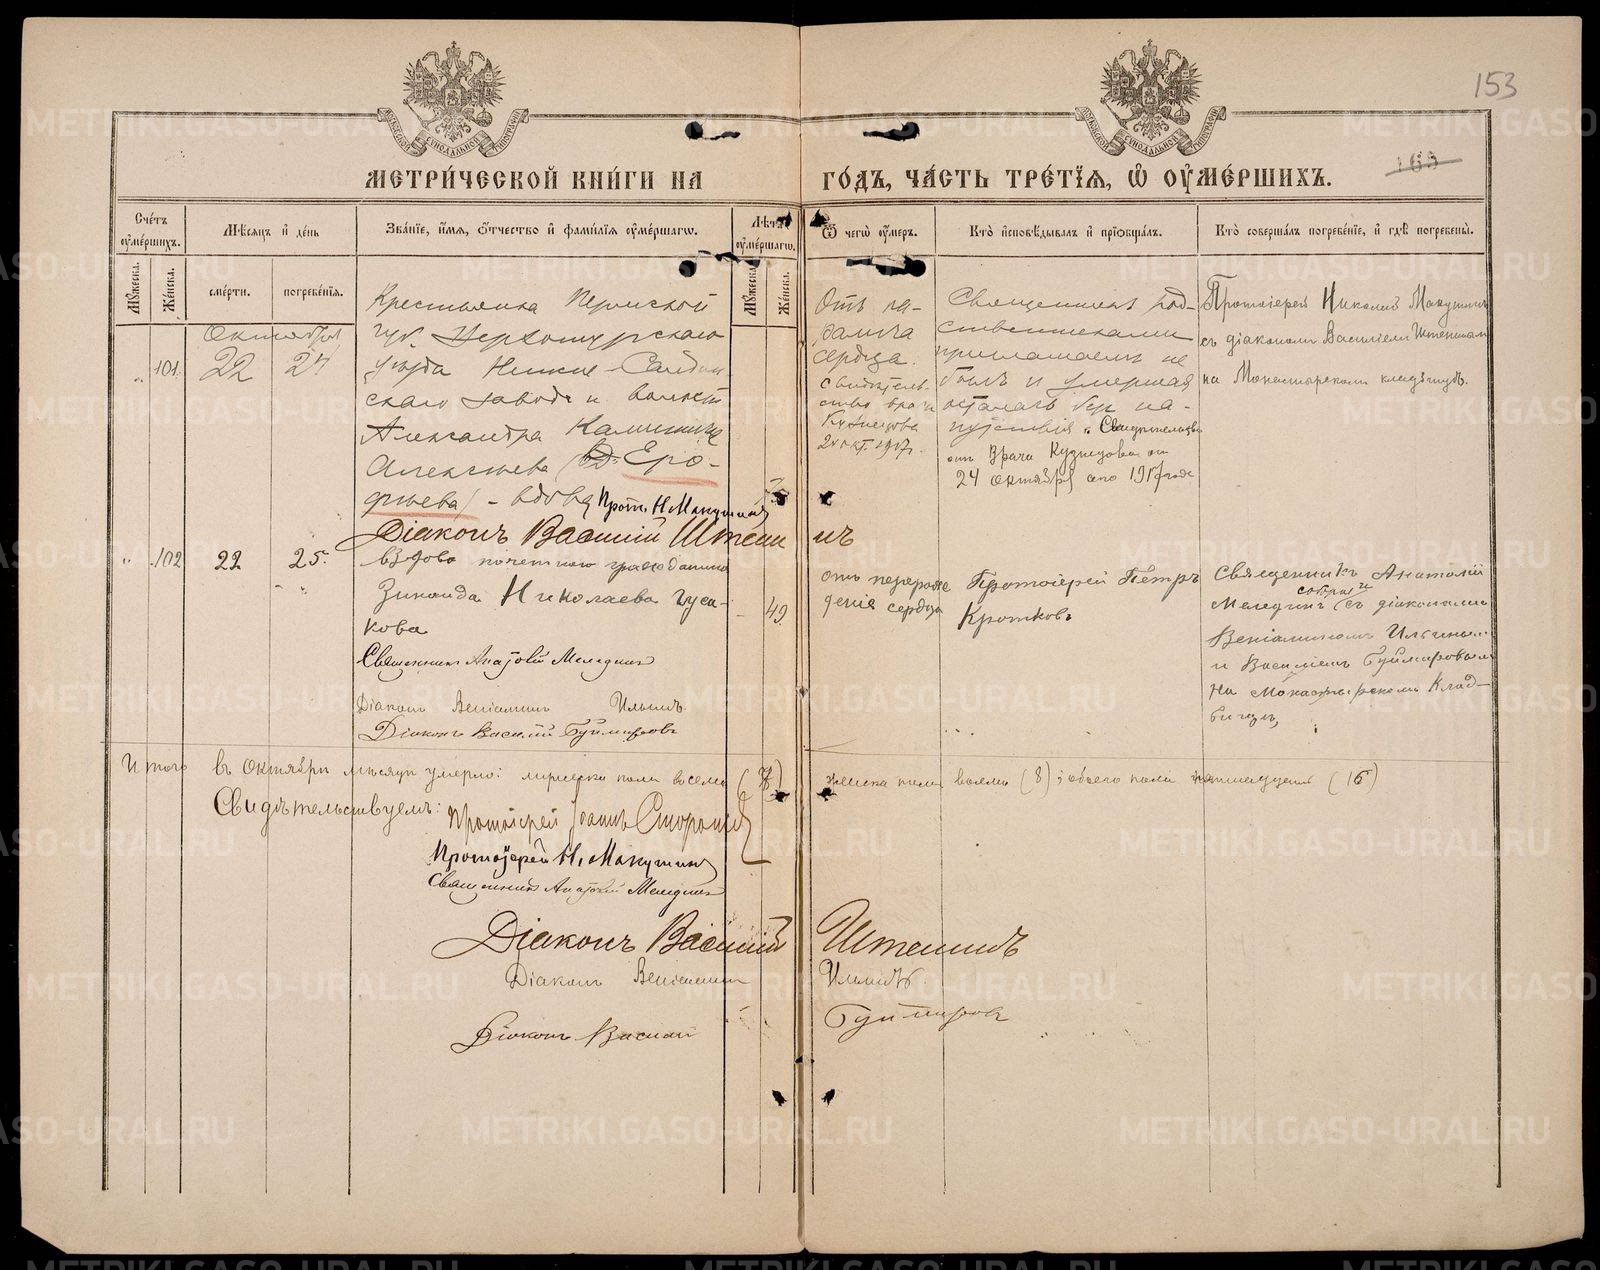 153
МОСКОВСКОЙ СѴНОДАЛЬНОЙ ТИПОГРАФІИ
МОСКОВСКОЙ СѴНОДАЛЬНОЙ ТИПОГРАФІИ
МЕТРИ́ЧЕСКОЙ КНИ́ГИ НА ГО́ДЪ, ЧА́СТЬ ТРЕ́ТЇѦ, Ѡ҆ ОУ҆МЕ́РШИХЪ.
Сче́тъ оу҆ме́ршихъ.
Мѣ́сѧцъ и҆ де́нь
Зва́нїе, и҆́мѧ, ѻ҆́тчество и҆ фами́лїѧ оу҆ме́ршагѡ.
Лѣ́та оу҆ме́ршагѡ.
Ѿ чегѡ̀ оу҆́меръ.
Кто̀ и҆сповѣ́дывалъ и҆ прїѡбща́лъ.
Кто̀ соверша́лъ погребе́нїе, и҆ гдѣ̀ погребены̀.
Мꙋ́жеска.
Же́нска.
сме́рти.
погребе́нїѧ.
Мꙋ́жеска.
Же́нска.
Октября
101
22
24
Крестьянка Пермской
губ. Верхотурскаго
уѣзда Нижне-Салдин
скаго завода и волости
Александра Калинина
Алексѣева (Еро-
фѣева) - вдова Прот. Н Макушинъ
Діаконъ Василій Штенинъ
Отъ па-
ралича
сердца.
свидѣтель-
ство врача
Кузнецова
24 окт. 1917 г.
Священникъ род-
ственниками
приглашаемъ не
былъ и умершая
осталась безъ на-
путствія. Свидѣтельство
отъ Врача Кузнецова от
24 Октября сего 1917 года
Протоіерей Николай Макушинъ
съ діакономъ Василіемъ Штенинымъ
на Монастырскомъ кладбищѣ.
102
22
25.
Вдова почетнаго гражданина
Зинаида Николаева Гуса-
кова
Священникъ Анатолій Мелединъ
Діаконъ Веніаминъ Ильинъ
Діаконъ Василій Буймировъ
49
отъ перерожде
денія сердца
Протоіерей Петръ
Кротковъ
Священникъ Анатолій
Мелединъ съ діаконами
Веніаминомъ Ильинымъ
и Василіемъ Буймировымъ
На Монастырскомъ Клад-
бищѣ
Итого въ Октябрѣ мѣсяцѣ умерло: мужеска пола восемь (8) женска пола восемь (8); обоего пола шестнадцать (16)
Свидѣтельствуемъ:
Протоіерей Іоаннъ Сторожевъ
Протоіерей Н. Макушинъ
Священникъ Анатолій Мелединъ
Діаконъ Василій Штенинъ
Діаконъ Веніаминъ Ильинъ
Діаконъ Василій Буймировъ
METRIKI.GASO-URAL.RU